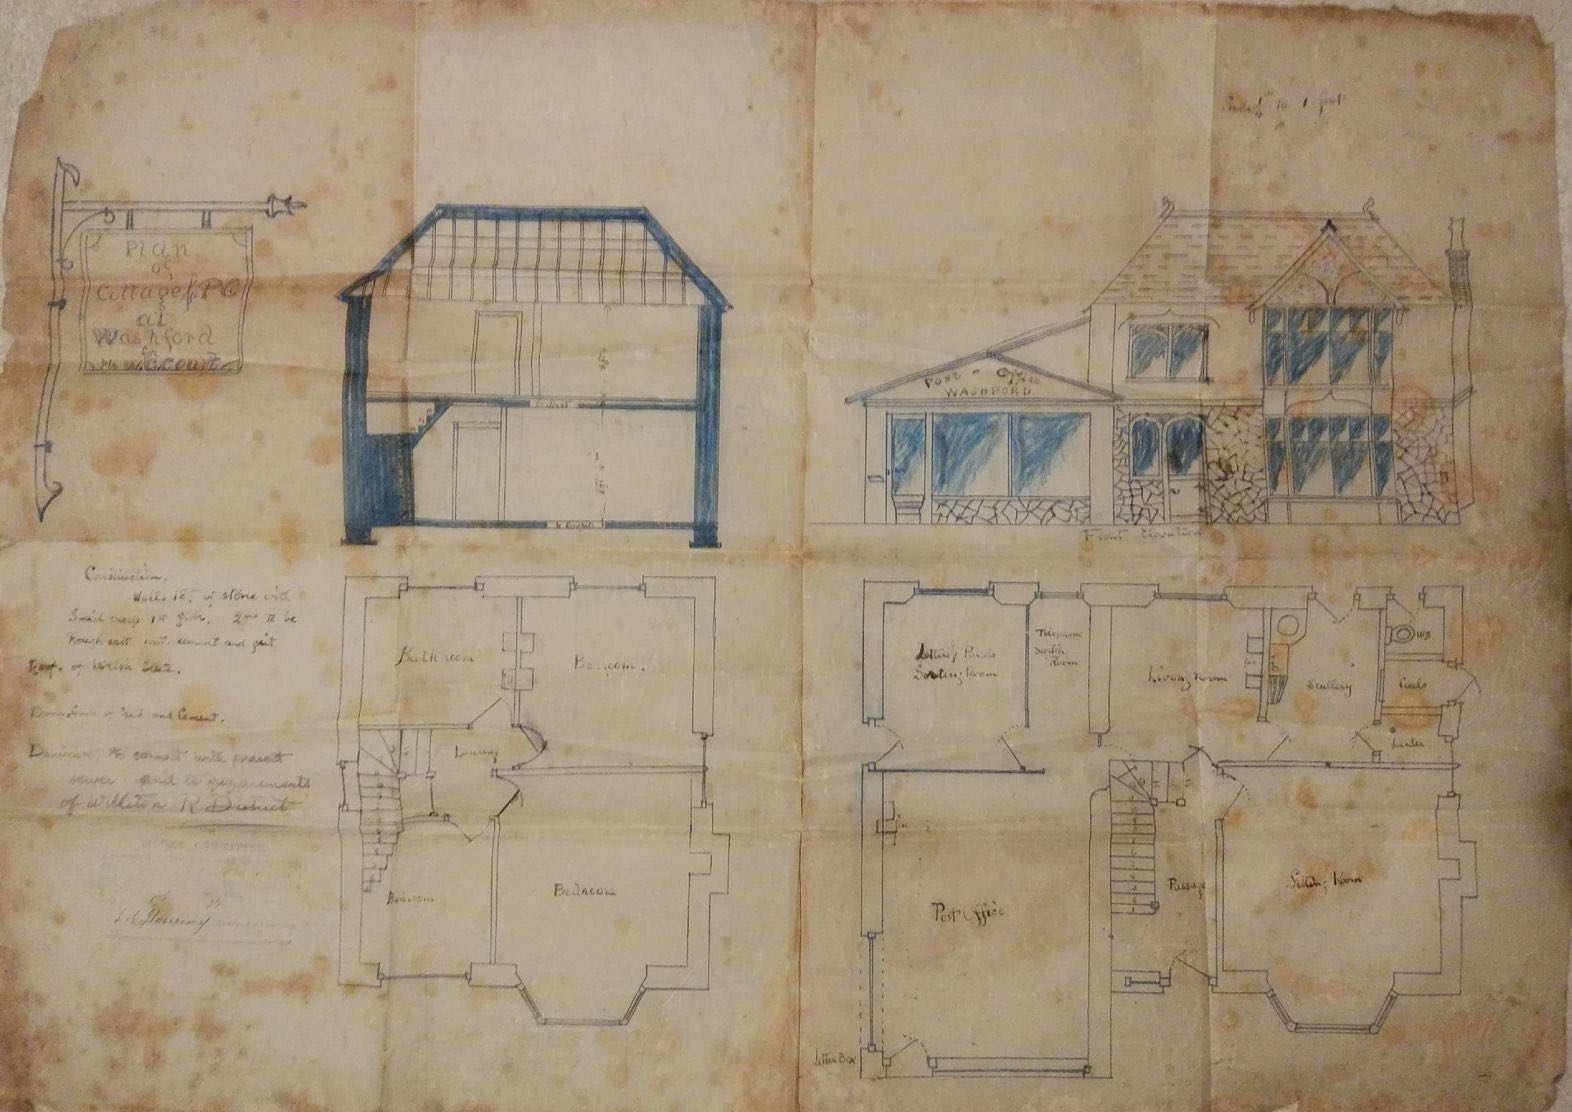 Plan
of
Cottage & P.O.
at
Washford
for
Mr W.C. Court
Scale ¼" to 1 foot
Post - Office
WASHFORD
Front Elevation
Construction.
Walls of stone with
1st floor, 2nd to be
Rough cast with cement and grit
Roof of Welsh Slate.
and Cement.
to connect with present
sewer and to requirements
of Williton R. District
Bath room
Bedroom.
Landing
Bedroom
Bedroom
Letter & Parcels
Sorting Room
Telephone
Switch
Room
Living Room
Scullery
WC
Coals
Larder
Post Office
Passage
Sitting Room
Letter Box